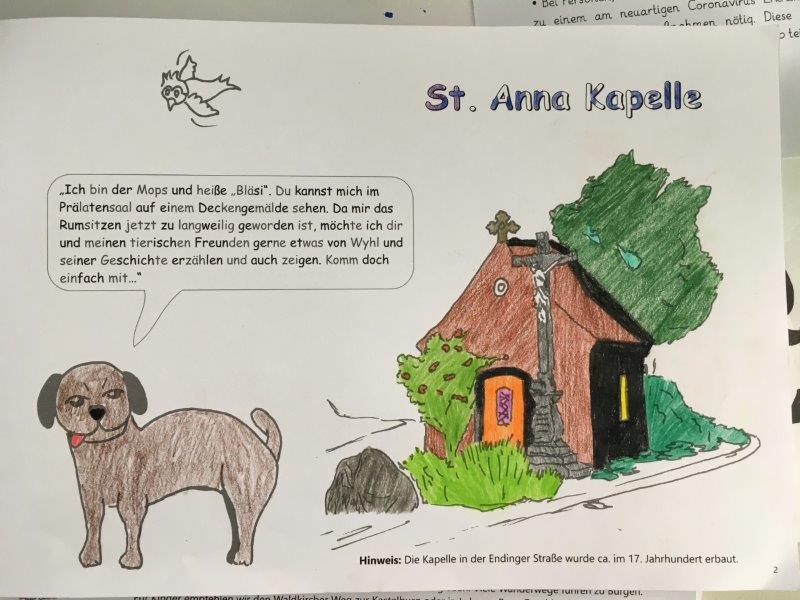 • Bei Personen,
zu einem am neuartigen Coronavirus
nötig. Diese
St. Anna Kapelle
„Ich bin der Mops und heiße „Bläsi“. Du kannst mich im
Prälatensaal auf einem Deckengemälde sehen. Da mir das
Rumsitzen jetzt zu langweilig geworden ist, möchte ich dir
und meinen tierischen Freunden gerne etwas von Wyhl und
seiner Geschichte erzählen und auch zeigen. Komm doch
einfach mit...“
Hinweis: Die Kapelle in der Endinger Straße wurde ca. im 17. Jahrhundert erbaut.
2
Für Kinder empfehlen wir den Waldkircher Weg zur Kastelburg
viele Wanderwege führen zu Burgen.